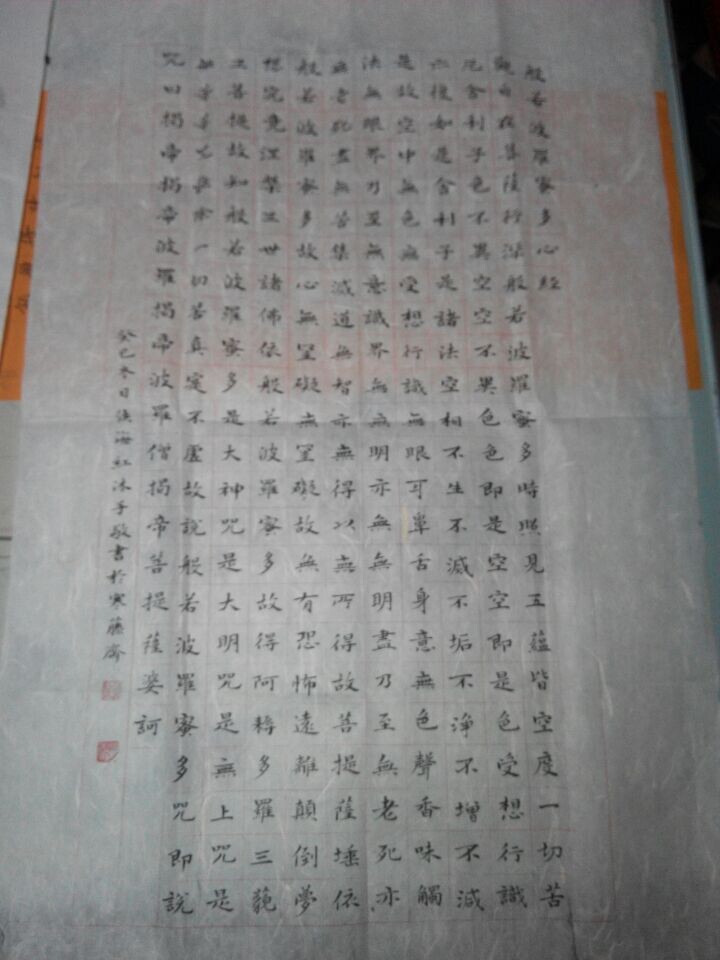 般若波羅蜜多心經
觀自在菩薩行深般若波羅蜜多時照見五蘊皆空度一切苦
厄舍利子色不異空空不異色色即是空空即是色受想行識
亦復如是舍利子是諸法空相不生不滅不垢不淨不增不減
是故空中無色無受想行識無眼耳鼻舌身意無色聲香味觸
法無眼界乃至無意識界無無明亦無無明盡乃至無老死亦
無老死盡無苦集滅道無智亦無得以無所得故菩提薩埵依
般若波羅蜜多故心無罣礙無罣礙故無有恐怖遠離顛倒夢
想究竟涅槃三世諸佛依般若波羅蜜多故得阿耨多羅三藐
三菩提故知般若波羅蜜多是大神咒是大明咒是無上咒是
無等等咒能除一切苦真實不虛故說般若波羅蜜多咒即說
咒曰揭帝揭帝波羅揭帝波羅僧揭帝菩提薩婆訶
癸巳冬日侯海紅沐手敬書於寒藤齋